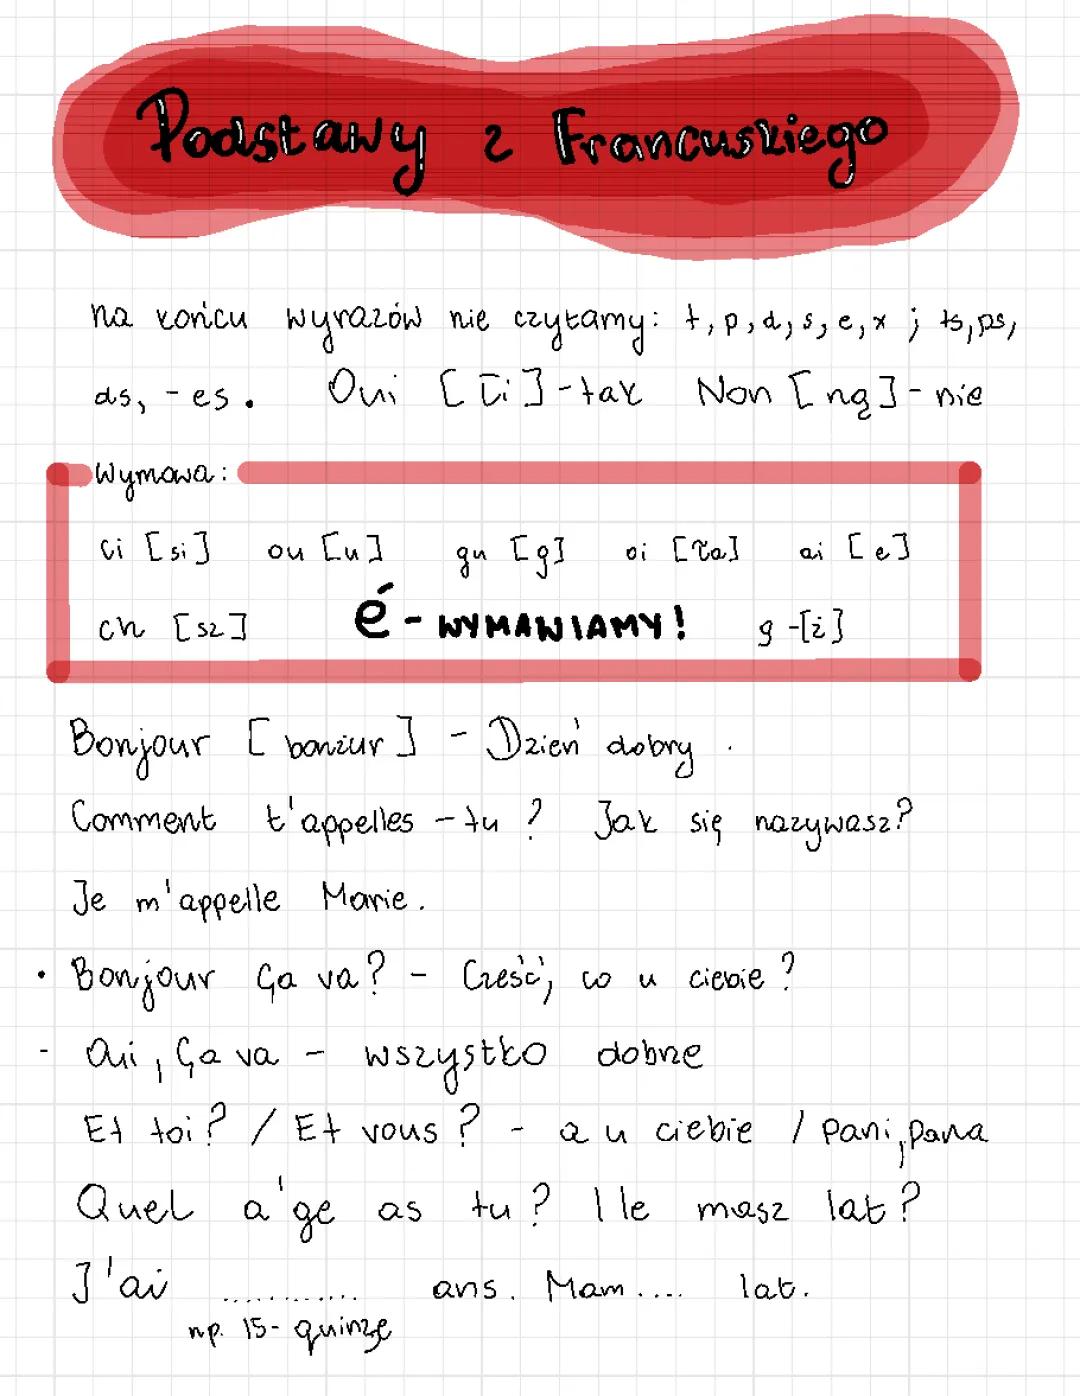 Podstawy z Francuskiego
na końcu wyrazów nie czytamy: t, p, d, s, e, x ; ts, ps,
ds, - es. Oui [ łi ] - tak Non [ ną ] - nie
Wymowa:
ci [si] ou [u] gu [g] oi [ła] ai [e]
ch [sz] é - WYMAWIAMY! g -[ż]
Bonjour [ bonżur ] - Dzień dobry .
Comment t'appelles - tu ? Jak się nazywasz?
Je m'appelle Marie.
• Bonjour Ça va? - Cześć, co u ciebie ?
- Oui, Ça va - wszystko dobrze
Et toi? / Et vous ? - a u ciebie / pani, pana
Quel a'ge as tu? Ile masz lat?
J'ai ............ ans. Mam .... lat.
np. 15 - quinze